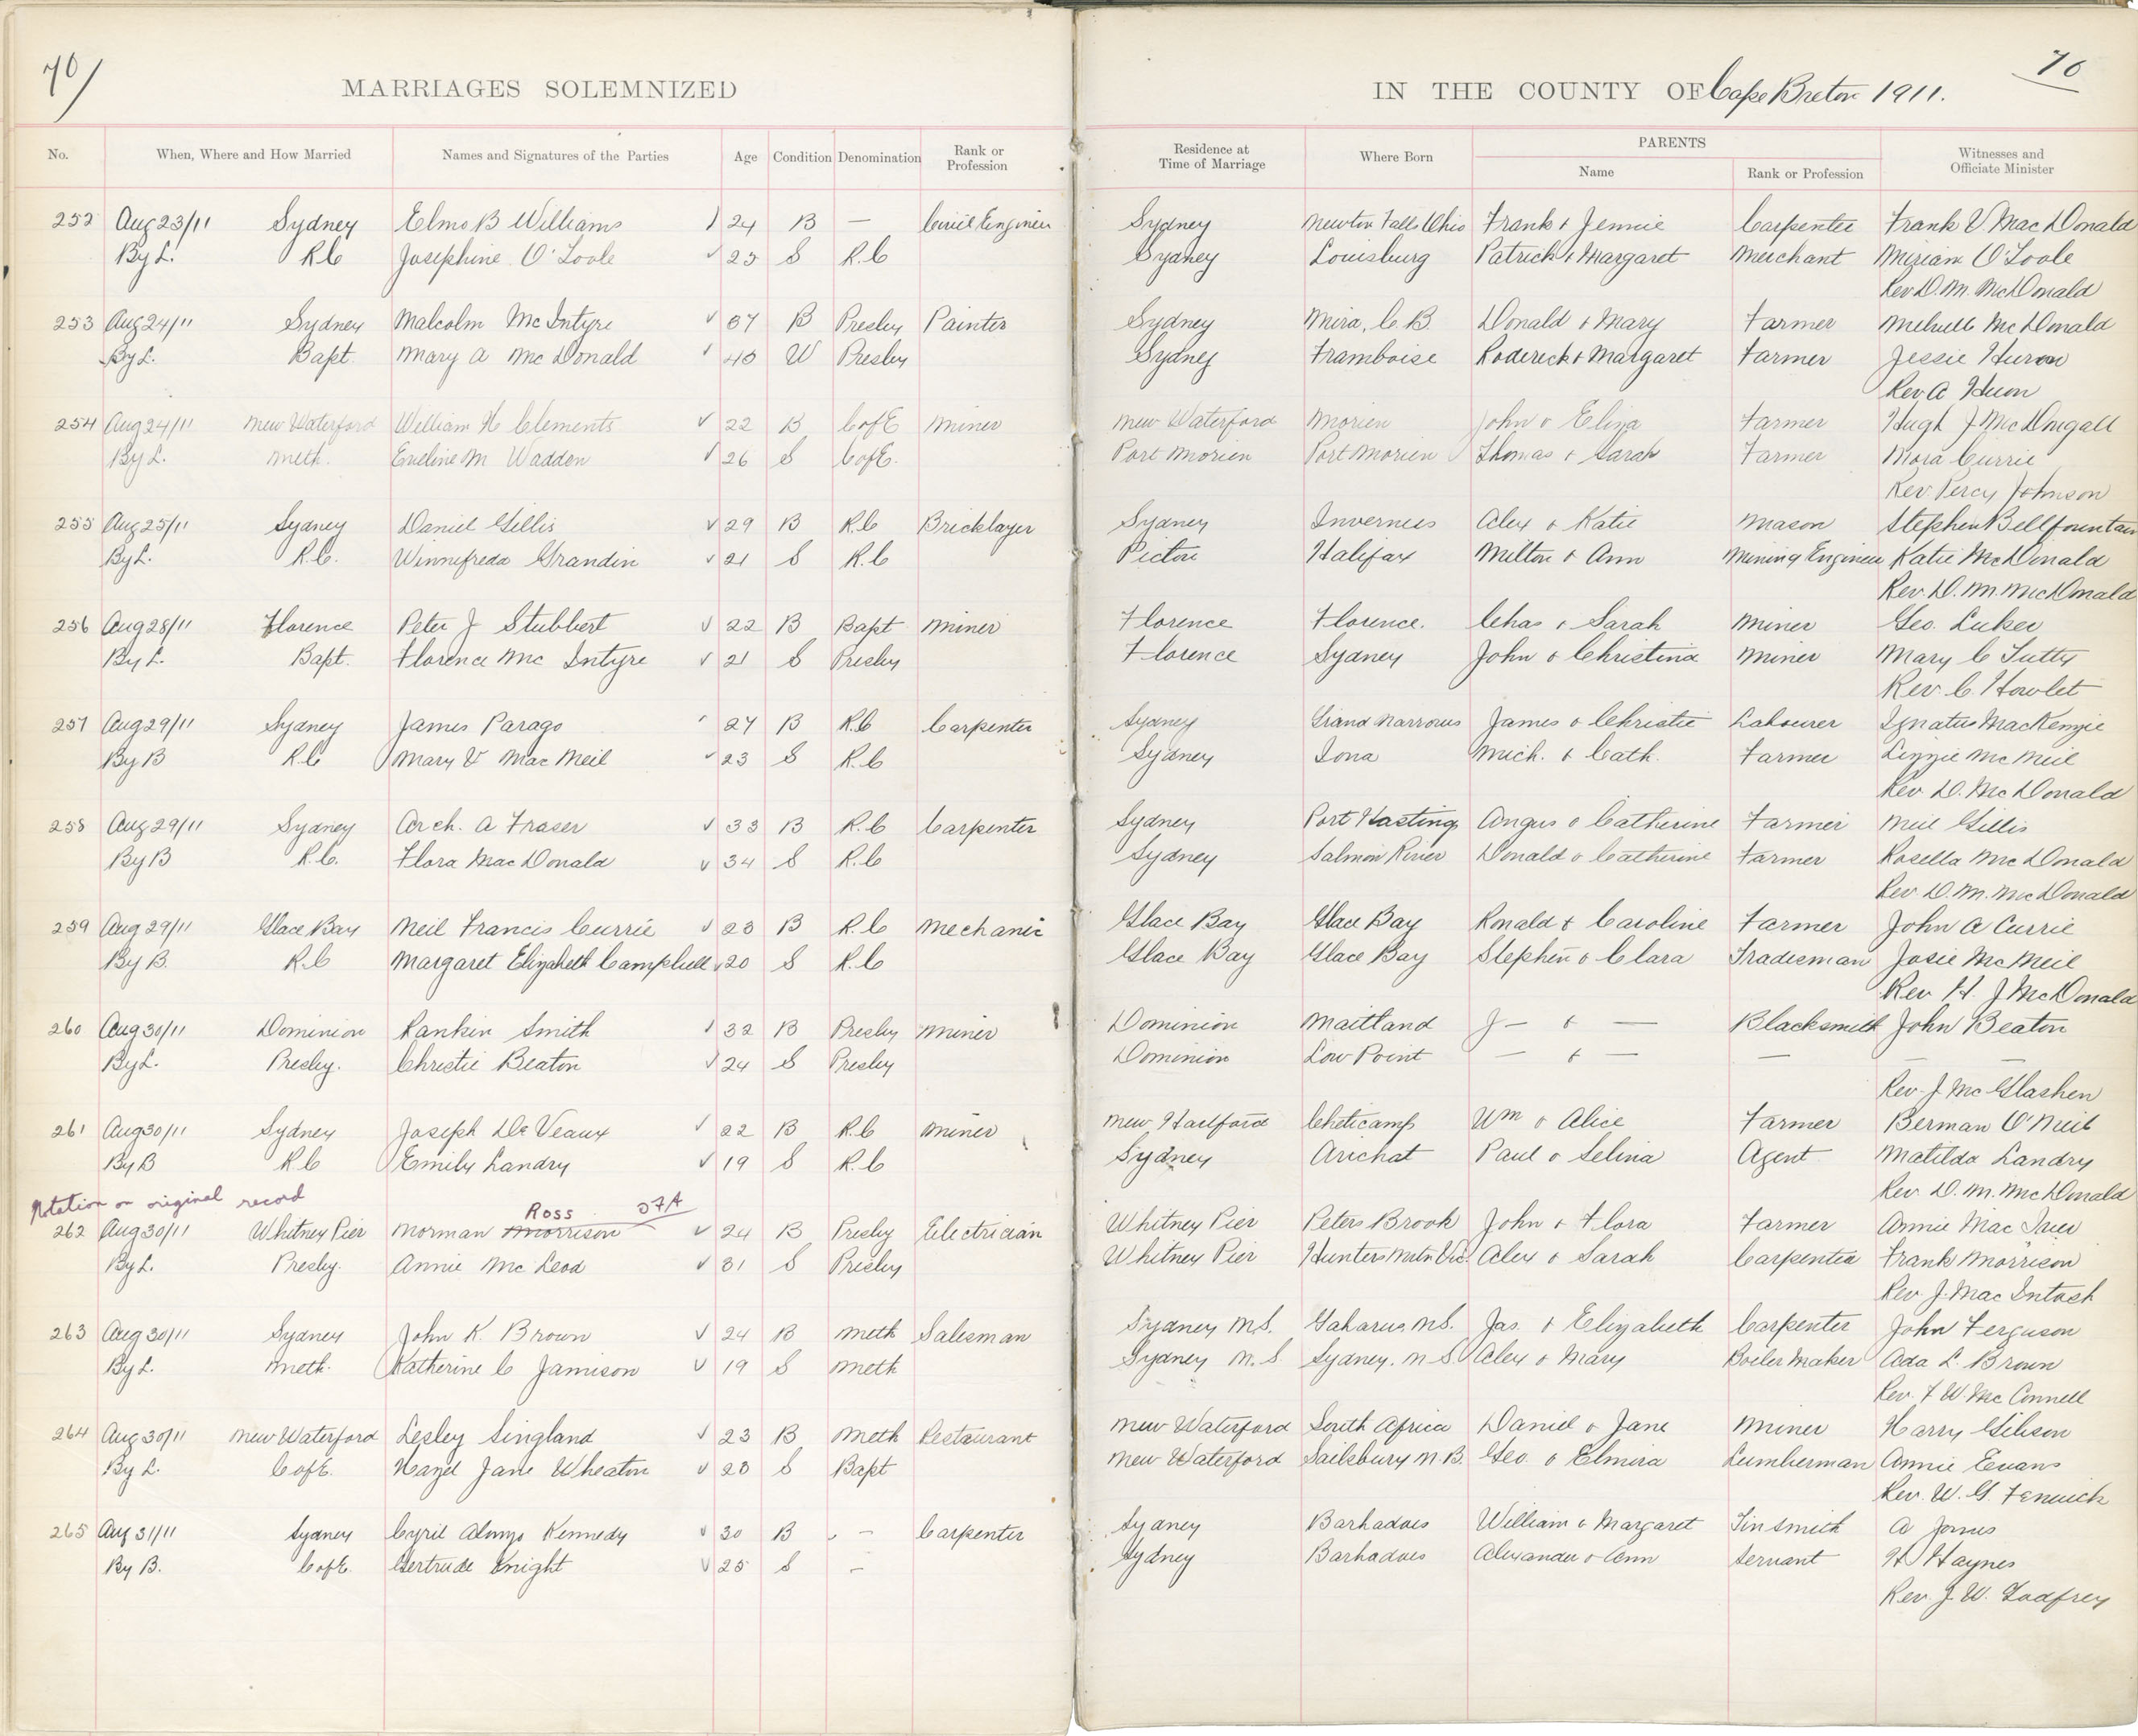 70/
70
MARRIAGES SOLEMNIZED IN THE COUNTY OF Cape Breton 1911.
No. When, Where and How Married Names and Signatures of the Parties Age Condition Denomination Rank or Profession Residence at Time of Marriage Where Born PARENTS Name Rank or Profession Witnesses and Officiate Minister
252 Aug 23/11 Sydney Elmo B Williams 24 B — Civil Engineer Sydney Newton Falls Ohio Frank & Jennie Carpenter Frank V. MacDonald
By L. R.C Josephine O'Toole ✓ 23 S R.C Sydney Louisburg Patrick & Margaret Merchant Miriam O'Toole
Rev D. M. McDonald
253 Aug 24/11 Sydney Malcolm McIntyre ✓ 37 B Presby Painter Sydney Mira, C.B. Donald & Mary Farmer McDonald
By L. Bapt. Mary A McDonald ✓ 40 W Presby Sydney Framboise Roderick & Margaret Farmer Jessie Huron
Rev A Huon
254 Aug 24/11 New Waterford William H Clements ✓ 22 B C of E Miner New Waterford Morien John & Eliza Farmer Hugh J McDougall
By L. Meth. Eveline M Wadden ✓ 26 S C of E. Port Morien Port Morien Thomas & Sarah Farmer Mora Currie
Rev. Percy Johnson
255 Aug 25/11 Sydney Daniel Gillis ✓ 29 B R.C Bricklayer Sydney Inverness Alex & Katie Mason Stephen Bellfountain
By L. R.C. Winnifreda Grandin ✓ 21 S R.C Pictou Halifax Milton & Ann Mining Engineer Katie McDonald
Rev. D. M. McDonald
256 Aug 28/11 Florence Peter J Stubbert ✓ 22 B Bapt Miner Florence Florence. Chas & Sarah Miner Geo. Luker
By L. Bapt. Florence McIntyre ✓ 21 S Presby Florence Sydney John & Christina Miner Mary C Tutty
Rev. C. Howlet
257 Aug 29/11 Sydney James Parago 27 B R.C Carpenter Sydney Grand Narrows James & Christie Labourer Ignatius MacKenzie
By B R.C Mary V MacNeil ✓ 23 S R.C Sydney Iona Mich. & Cath. Farmer Lizzie McNeil
Rev D. McDonald
258 Aug 29/11 Sydney Arch. A Fraser ✓ 33 B R.C Carpenter Sydney Port Hastings Angus & Catherine Farmer Neil Gillis
By B R.C. Flora MacDonald ✓ 34 S R.C Sydney Salmon River Donald & Catherine Farmer Rosella McDonald
Rev D. M. McDonald
259 Aug 29/11 Glace Bay Neil Francis Currie ✓ 23 B R.C Mechanic Glace Bay Glace Bay Ronald & Caroline Farmer John A Currie
By B. R.C Margaret Elizabeth Campbell ✓ 20 S R.C Glace Bay Glace Bay Stephen & Clara Tradesman Josie McNeil
Rev. H. J McDonald
260 Aug 30/11 Dominion Rankin Smith ✓ 32 B Presby Miner Dominion Maitland J — & — Blacksmith John Beaton
By L. Presby. Christie Beaton ✓ 24 S Presby Dominion Low Point — & — — — —
Rev. J. McGlashen
261 Aug 30/11 Sydney Joseph DeVeaux ✓ 22 B R.C Miner New Cheticamp Wm & Alice Farmer Berman O'Neil
By B R.C Emily Landry ✓ 19 S R.C Sydney Arichat Paul & Selina Agent Matilda Landry
Rev. D. M. McDonald
Notation on original record Ross JFA
262 Aug 30/11 Whitney Pier Norman Morrison ✓ 24 B Presby Electrician Whitney Pier Peters Brook John & Flora Farmer Annie Mac
By L. Presby. Annie McLeod ✓ 31 S Presby Whitney Pier Hunters Mtn Vic. Alex & Sarah Carpenter Frank Morrison
Rev J. MacIntosh
263 Aug 30/11 Sydney John K. Brown ✓ 24 B Meth Salesman Sydney N.S. Gabarus N.S. Jas. & Elizabeth Carpenter John Ferguson
By L. Meth. Katherine C Jamison ✓ 19 S Meth Sydney N.S. Sydney. N.S. Alex & Mary Boiler Maker Ada L. Brown
Rev. F W. McConnell
264 Aug 30/11 New Waterford Lesley Singland ✓ 23 B Meth Restaurant New Waterford South Africa Daniel & Jane Miner Harry Gibson
By L. C of E. Hazel Jane Wheaton ✓ 23 S Bapt New Waterford Sailsbury N.B. Geo. & Elmira Lumberman Annie Evans
Rev. W. G. Fenwick
265 Aug 31/11 Sydney Cyril Alonzo Kennedy ✓ 30 B — Carpenter Sydney Barbadoes William & Margaret Tinsmith A Jones
By B. C of E. Gertrude Knight ✓ 25 S — Sydney Barbadoes Alexander & Ann Servant H Haynes
Rev. J. W. Godfrey